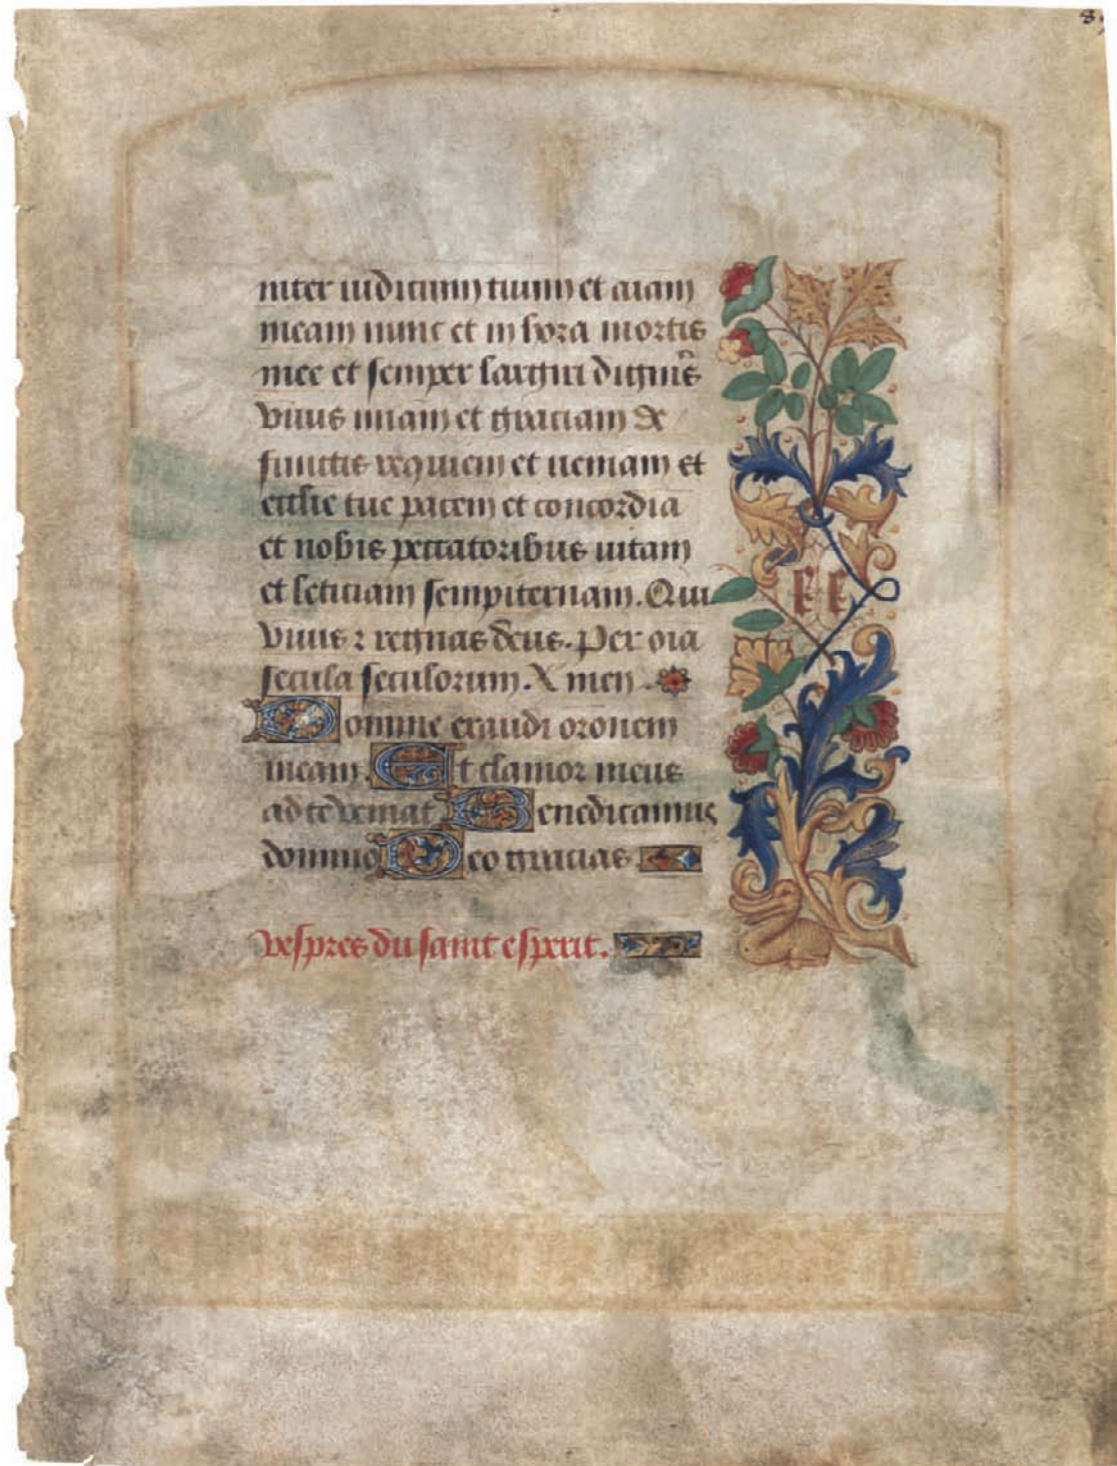 8
inter iudicium tuum et aĩam
meam nunc et in hora mortis
mee et semper largiri digneris
viuis miam et graciam de
functis requiem et ueniam et
ecclie tue pacem et concordia
et nobis peccatoribus uitam
et leticiam sempiternam. Qui
viuis ⁊ regnas deus. Per oia
secula seculorum. Amen.
Domine exaudi oronem
meam. Et clamor meus
ad te veniat Benedicamus
domino Deo gracias
Vespres du saint esperit.